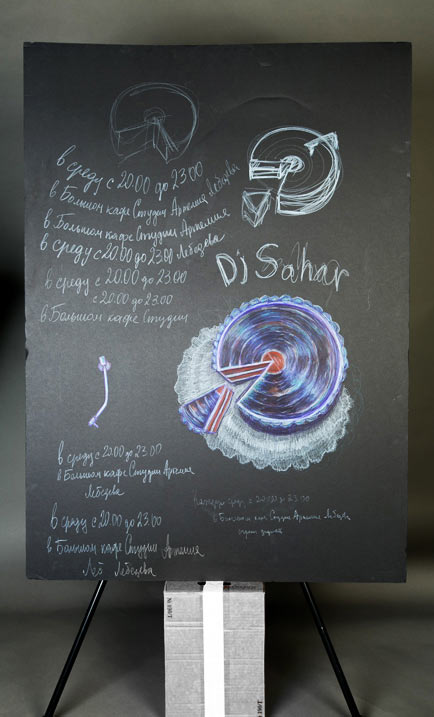 в среду с 20.00 до 23.00
в Большом кафе Студии Артемия Лебедева
в Большом кафе Студии Артемия
в среду с 20.00 до 23.00 Лебедева
в среду с 20.00 до 23.00
с 20.00 до 23.00
в Большом кафе Студии
Dj Sahar
в среду с 20.00 до 23.00
в Большом кафе Студии Артемия
Лебедева
в среду с 20.00 до 23.00
в Большом кафе Студии Артемия
Леб Лебедева
среду с 20.00 до 23.00
в Большом кафе Студии Артемия Лебедева